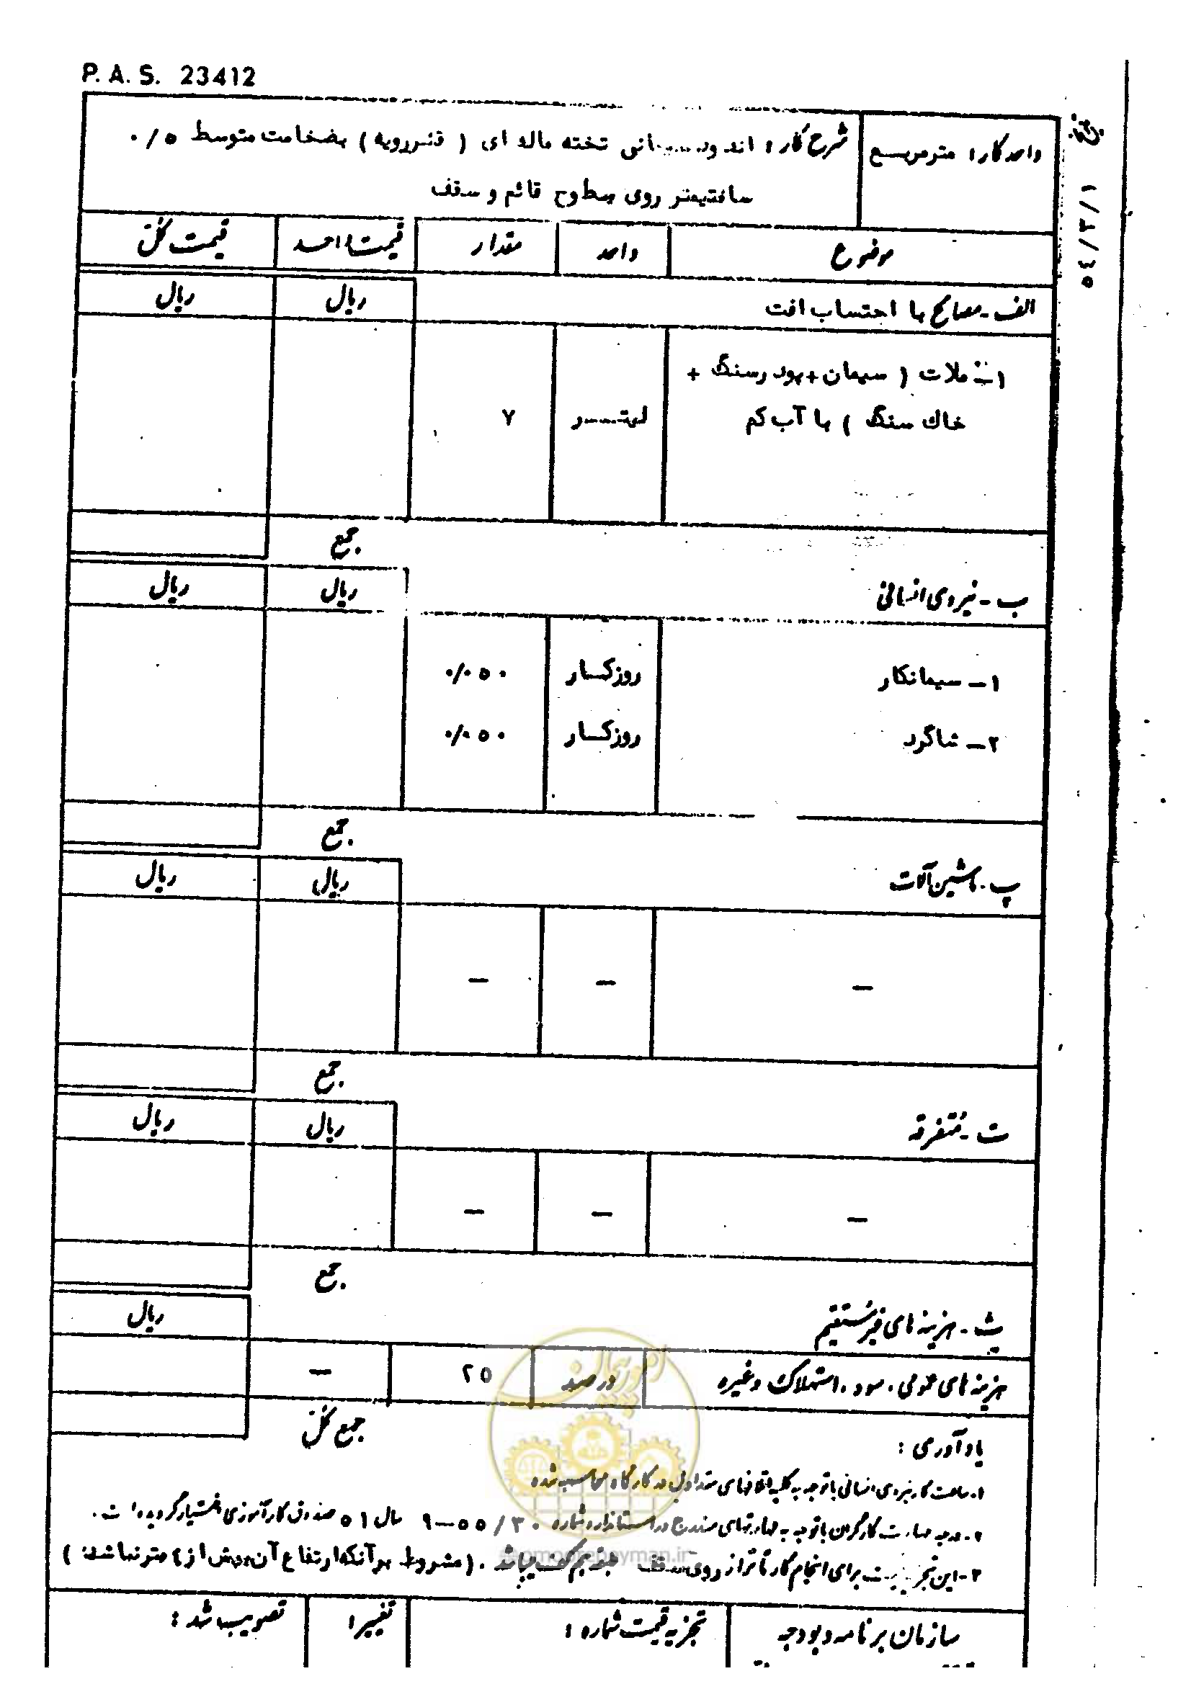 P. A. S. 23412
واحد کار : مترمربع
شرح کار : اندود سیمانی تخته ماله ای ( قشررویه ) بضخامت متوسط ۰/۵
سانتیمتر روی سطوح قائم و سقف
تاریخ ۵۴/۳/۱
موضوع واحد مقدار قیمت واحد قیمت کل
الف - مصالح با احتساب افت ریال ریال
۱- ملات ( سیمان + پودر سنگ +
خاک سنگ ) با آب کم لیتر ۷
جمع
ب - نیروی انسانی ریال ریال
۱ - سیمانکار روزکار ۰/۰۵۰
۲ - شاگرد روزکار ۰/۰۵۰
جمع
پ - ماشین آلات ریال ریال
— — —
جمع
ت - متفرقه ریال ریال
— — —
جمع
ث - هزینه های غیرمستقیم ریال
هزینه های عمومی ، سود ، استهلاک وغیره درصد ۲۵ —
جمع کل
یادآوری :
۱- ساعت کار نیروی انسانی با توجه به کلیه اتفاقهای متداول در کارگاه محاسبه شده
۲- درجه مهارت کارگران با توجه به مهارتهای مندرج در استاندارد شماره ۹-۵۵/۳۰ سال ۵۱ صندوق کارآموزی اختیار گردیده است .
۳- این تجزیه برای انجام کار تا تراز روی سقف طبقه همکف میباشد . ( مشروط بر آنکه ارتفاع آن بیش از ۴ متر نباشد )
سازمان برنامه و بودجه تجزیه قیمت شماره : تغییر : تصویب شد :